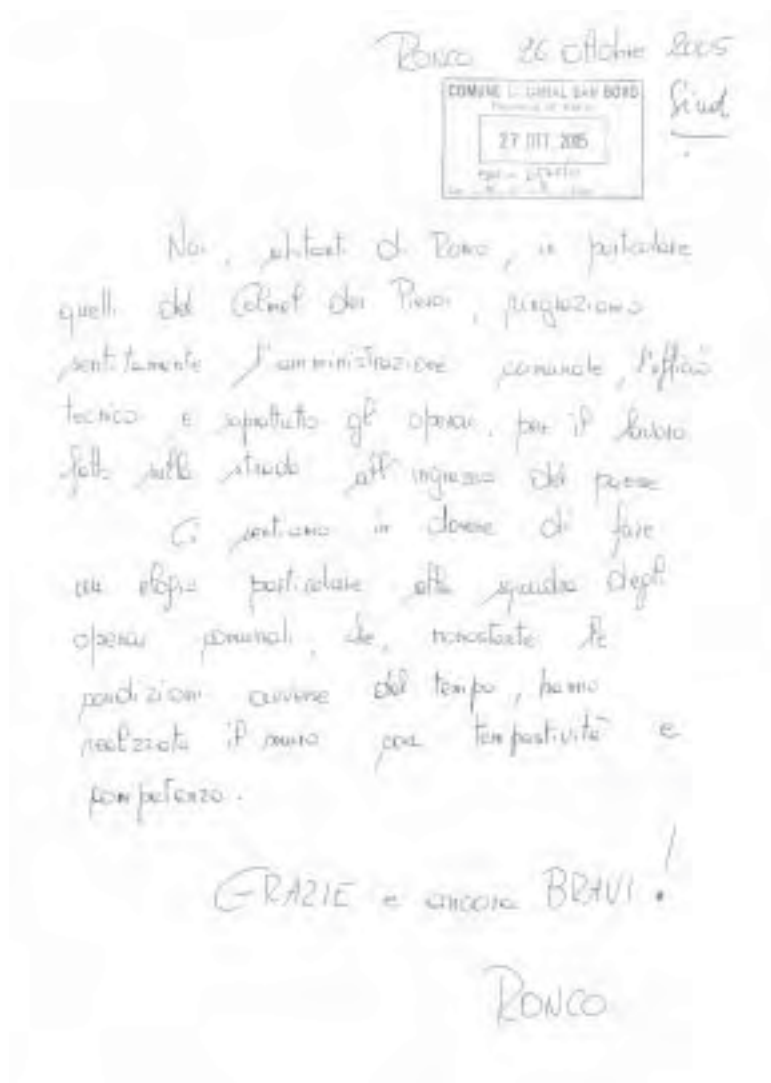 Ronco 26 Ottobre 2005
COMUNE DI CANAL SAN BOVO
Sind
27 OTT. 2005
Noi, abitanti di Ronco, in particolare
quelli del Colmel dei Pieroi, ringraziamo
sentitamente l'amministrazione comunale, l'ufficio
tecnico e soprattutto gli operai, per il lavoro
fatto sulla strada all'ingresso del paese
Ci sentiamo in dovere di fare
un elogio particolare alla squadra degli
operai comunali, che, nonostante le
condizioni avverse del tempo, hanno
realizzato il muro con tempestività e
competenza.
GRAZIE e ancora BRAVI!
RONCO